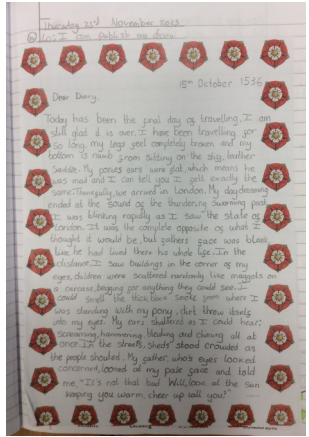 Thursday 23rd November 2023
LO: I can publish my draft
15th October 1536
Dear Diary,
Today has been the final day of travelling, I am
still glad it is over. I have been travelling for
so long, my legs feel completely broken and my
bottom is numb from sitting on the stiff, leather
saddle. My ponies ears were flat, which means he
was mad and I can tell you I felt exactly the
same. Thankfully, we arrived in London. My daydreaming
ended at the sound of the thundering swarming past
I was blinking rapidly as I saw the state of
London. It was the complete opposite of what I
thought it would be, but fathers face was blank
like he had lived there his whole life. In the
distance I saw buildings in the corner of my
eyes, children were scattered randomly like maggots on
a carcase, begging for anything they could see. I
could smell the thick black smoke from where I
was standing with my pony, dirt threw itself
into my eyes. My ears shattered as I could hear:
Screaming, hammering, bleating and chewing all at
once. In the streets, sheds stood crowded as
the people shouted. My father, who's eyes looked
concerned, looked at my pale face and told
me, "It's not that bad Will, look at the sun
keeping you warm, cheer up will you?"